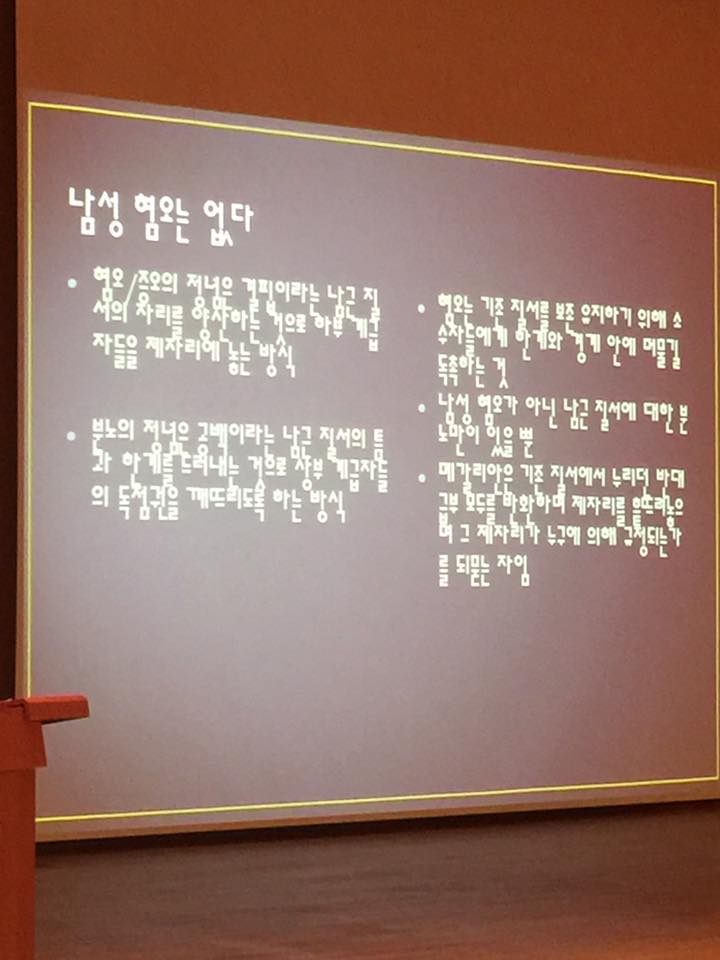 남성 혐오는 없다
혐오/증오의 정념은 결핍이라는 남근 질
서의 자리를 양산하는 것으로 하부 계급
자들을 제자리에 놓는 방식
분노의 정념은 공백이라는 남근 질서의 틈
과 한계를 드러내는 것으로 상부 계급자들
의 독점권을 깨뜨리도록 하는 방식
혐오는 기존 질서를 보존 유지하기 위해 소
수자들에게 한계와 경계 안에 머물길
독촉하는 것
남성 혐오가 아닌 남근 질서에 대한 분
노만이 있을 뿐
메갈리안은 기존 질서에서 누리던 반대
급부 모두를 반환하며 제자리를 흩뜨려놓으
며 그 제자리가 누구에 의해 규정되는가
를 되묻는 자임